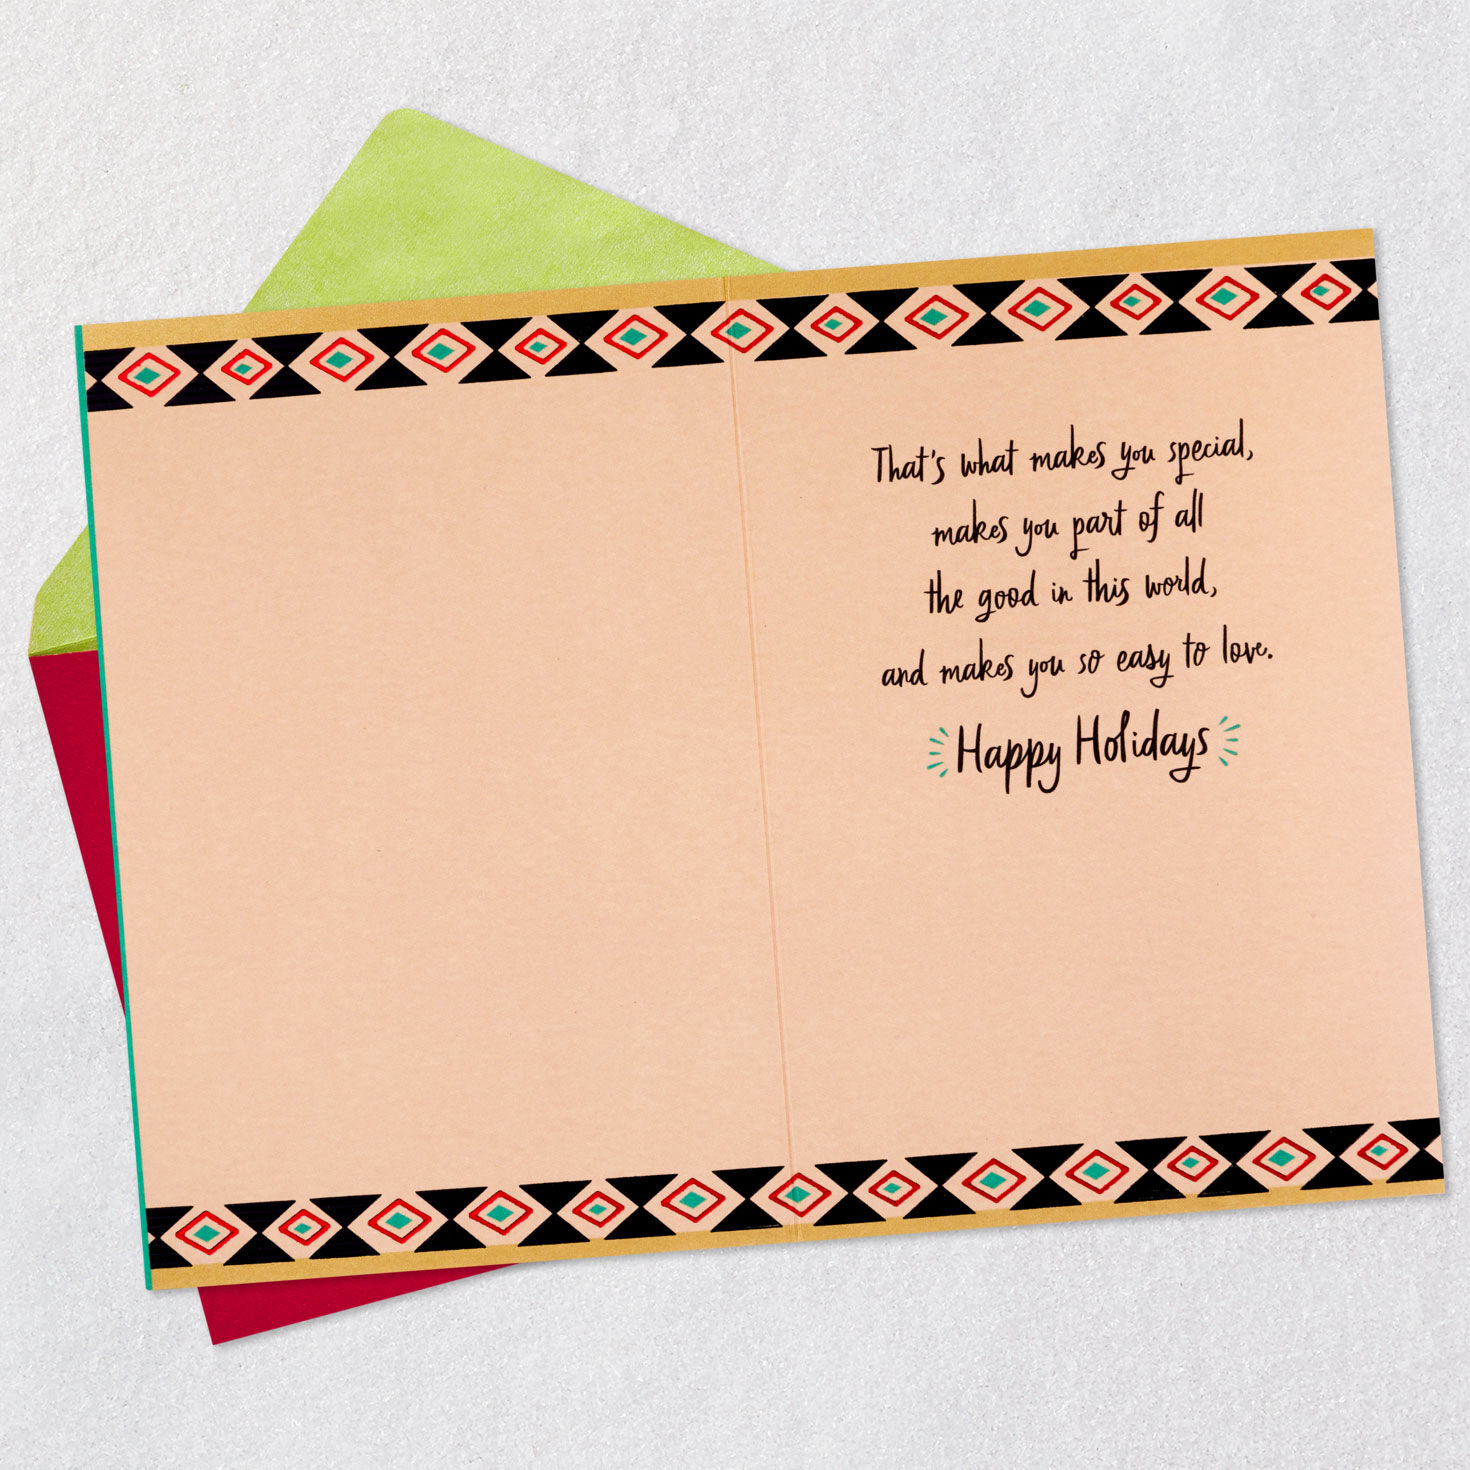 That's what makes you special,
makes you part of all
the good in this world,
and makes you so easy to love.
Happy Holidays